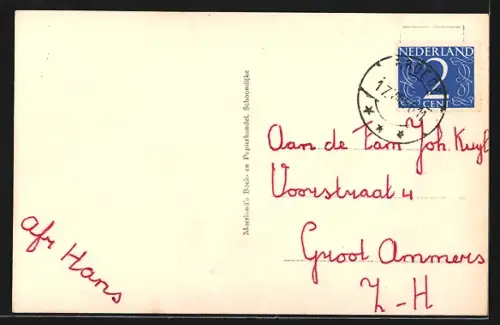 NEDERLAND
2
CENT
Aan de fam Joh. Kuyt
Voorstraat 4
Groot Ammers
Z-H
afz Hans
Meerland's Boek- en Papierhandel, Schoondijke